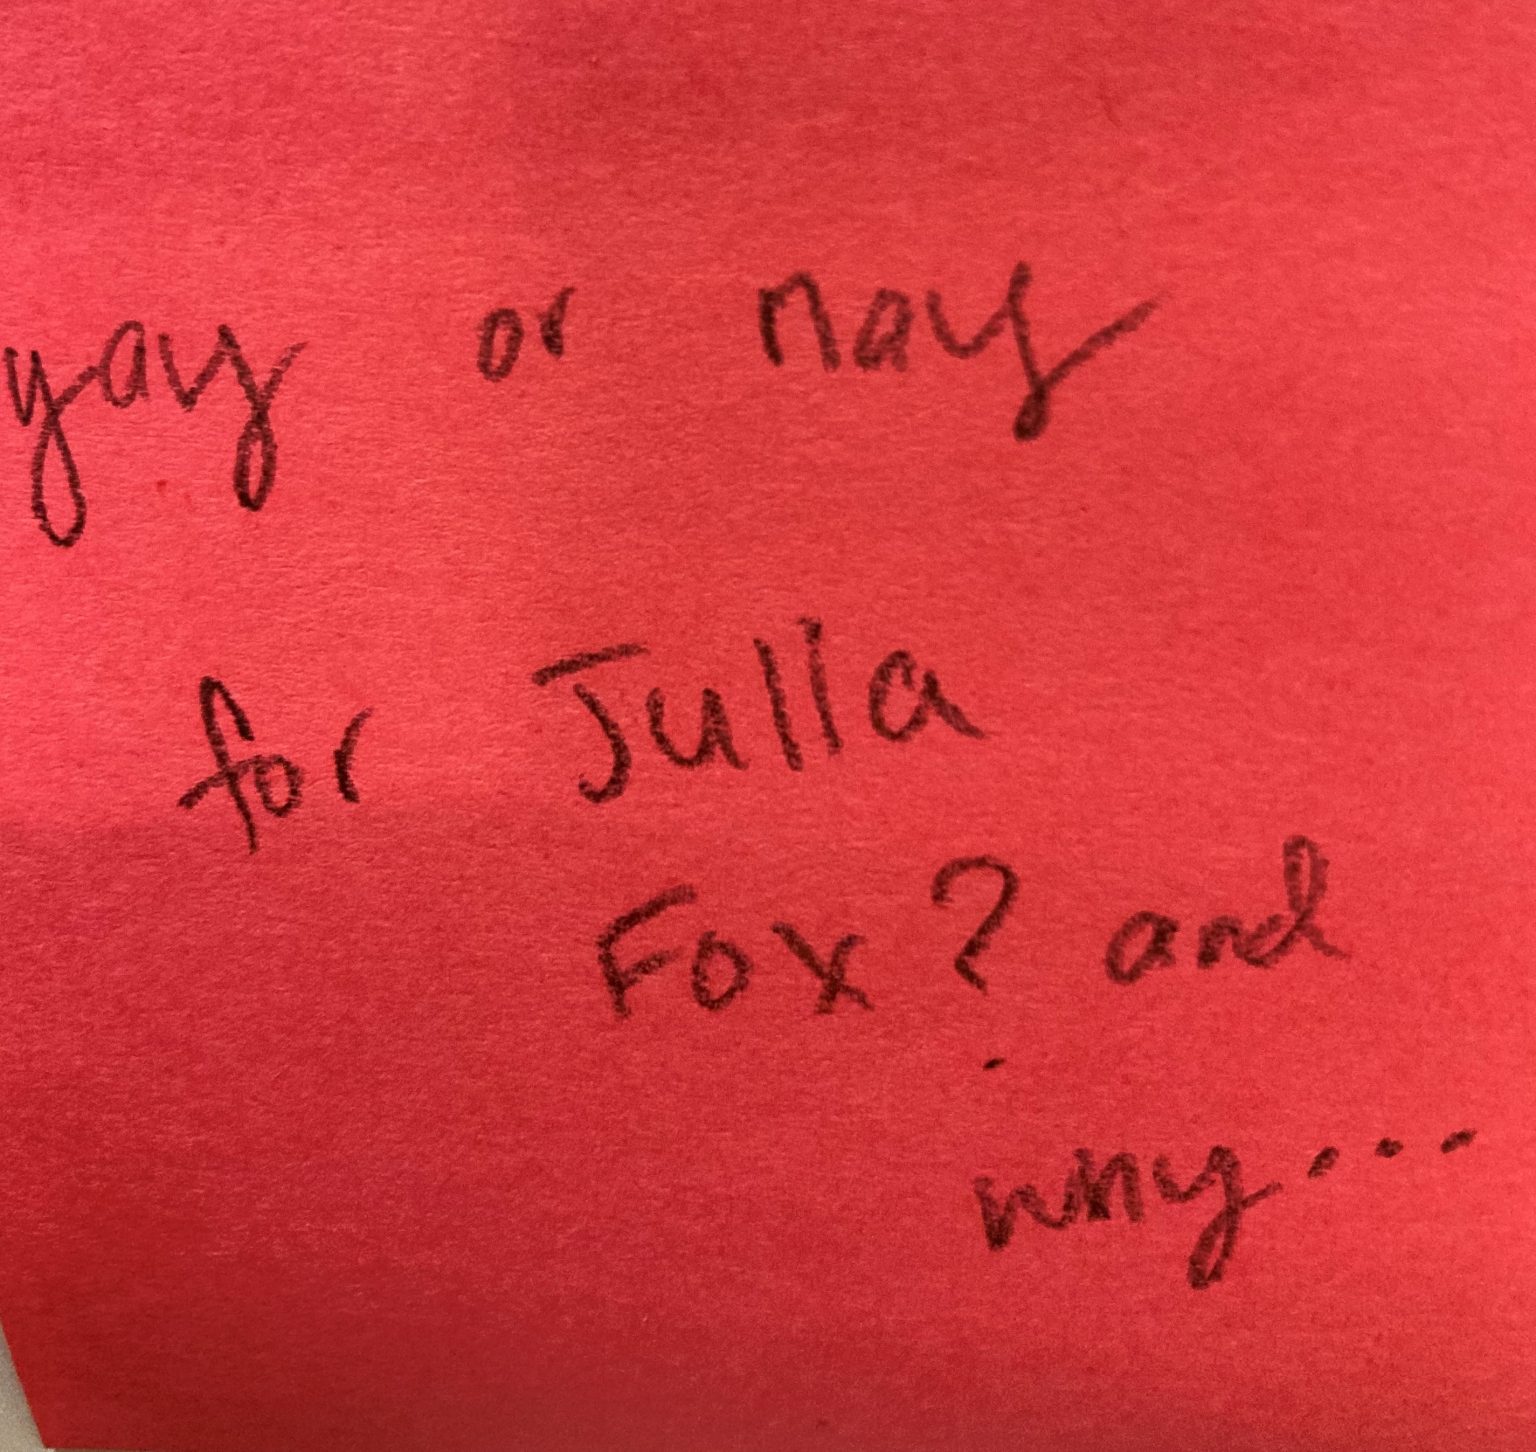 yay or nay
for Julia
Fox? and
why...